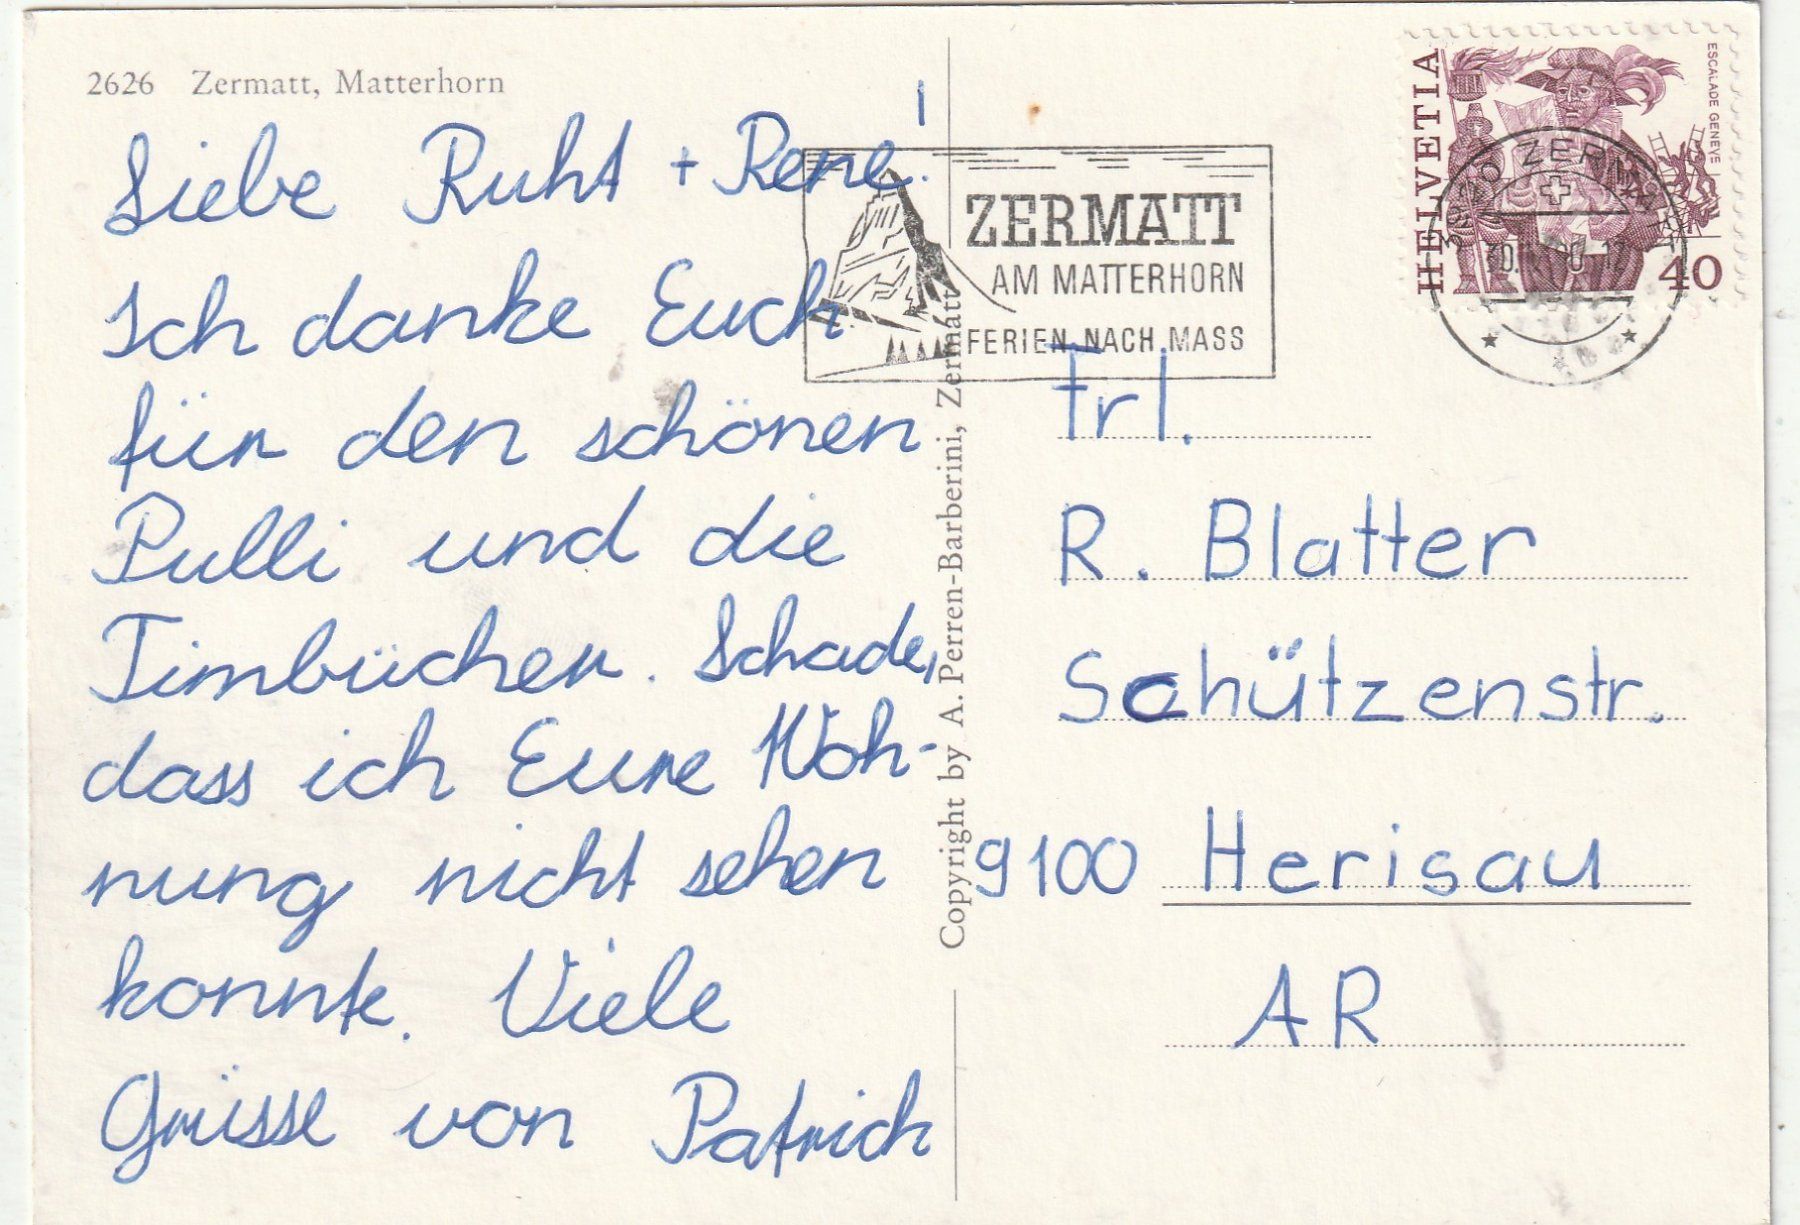 2626 Zermatt, Matterhorn
Liebe Ruht + Rene!
Ich danke Euch
für den schönen
Pulli und die
Timbücher. Schade,
dass ich Eure Woh-
nung nicht sehen
konnte. Viele
Grüsse von Patrick
Copyright by A. Perren-Barberini, Zermatt
ZERMATT
AM MATTERHORN
FERIEN NACH MASS
HELVETIA
ESCALADE GENEVE
40
ZERMATT
Frl.
R. Blatter
Schützenstr.
9100 Herisau
AR